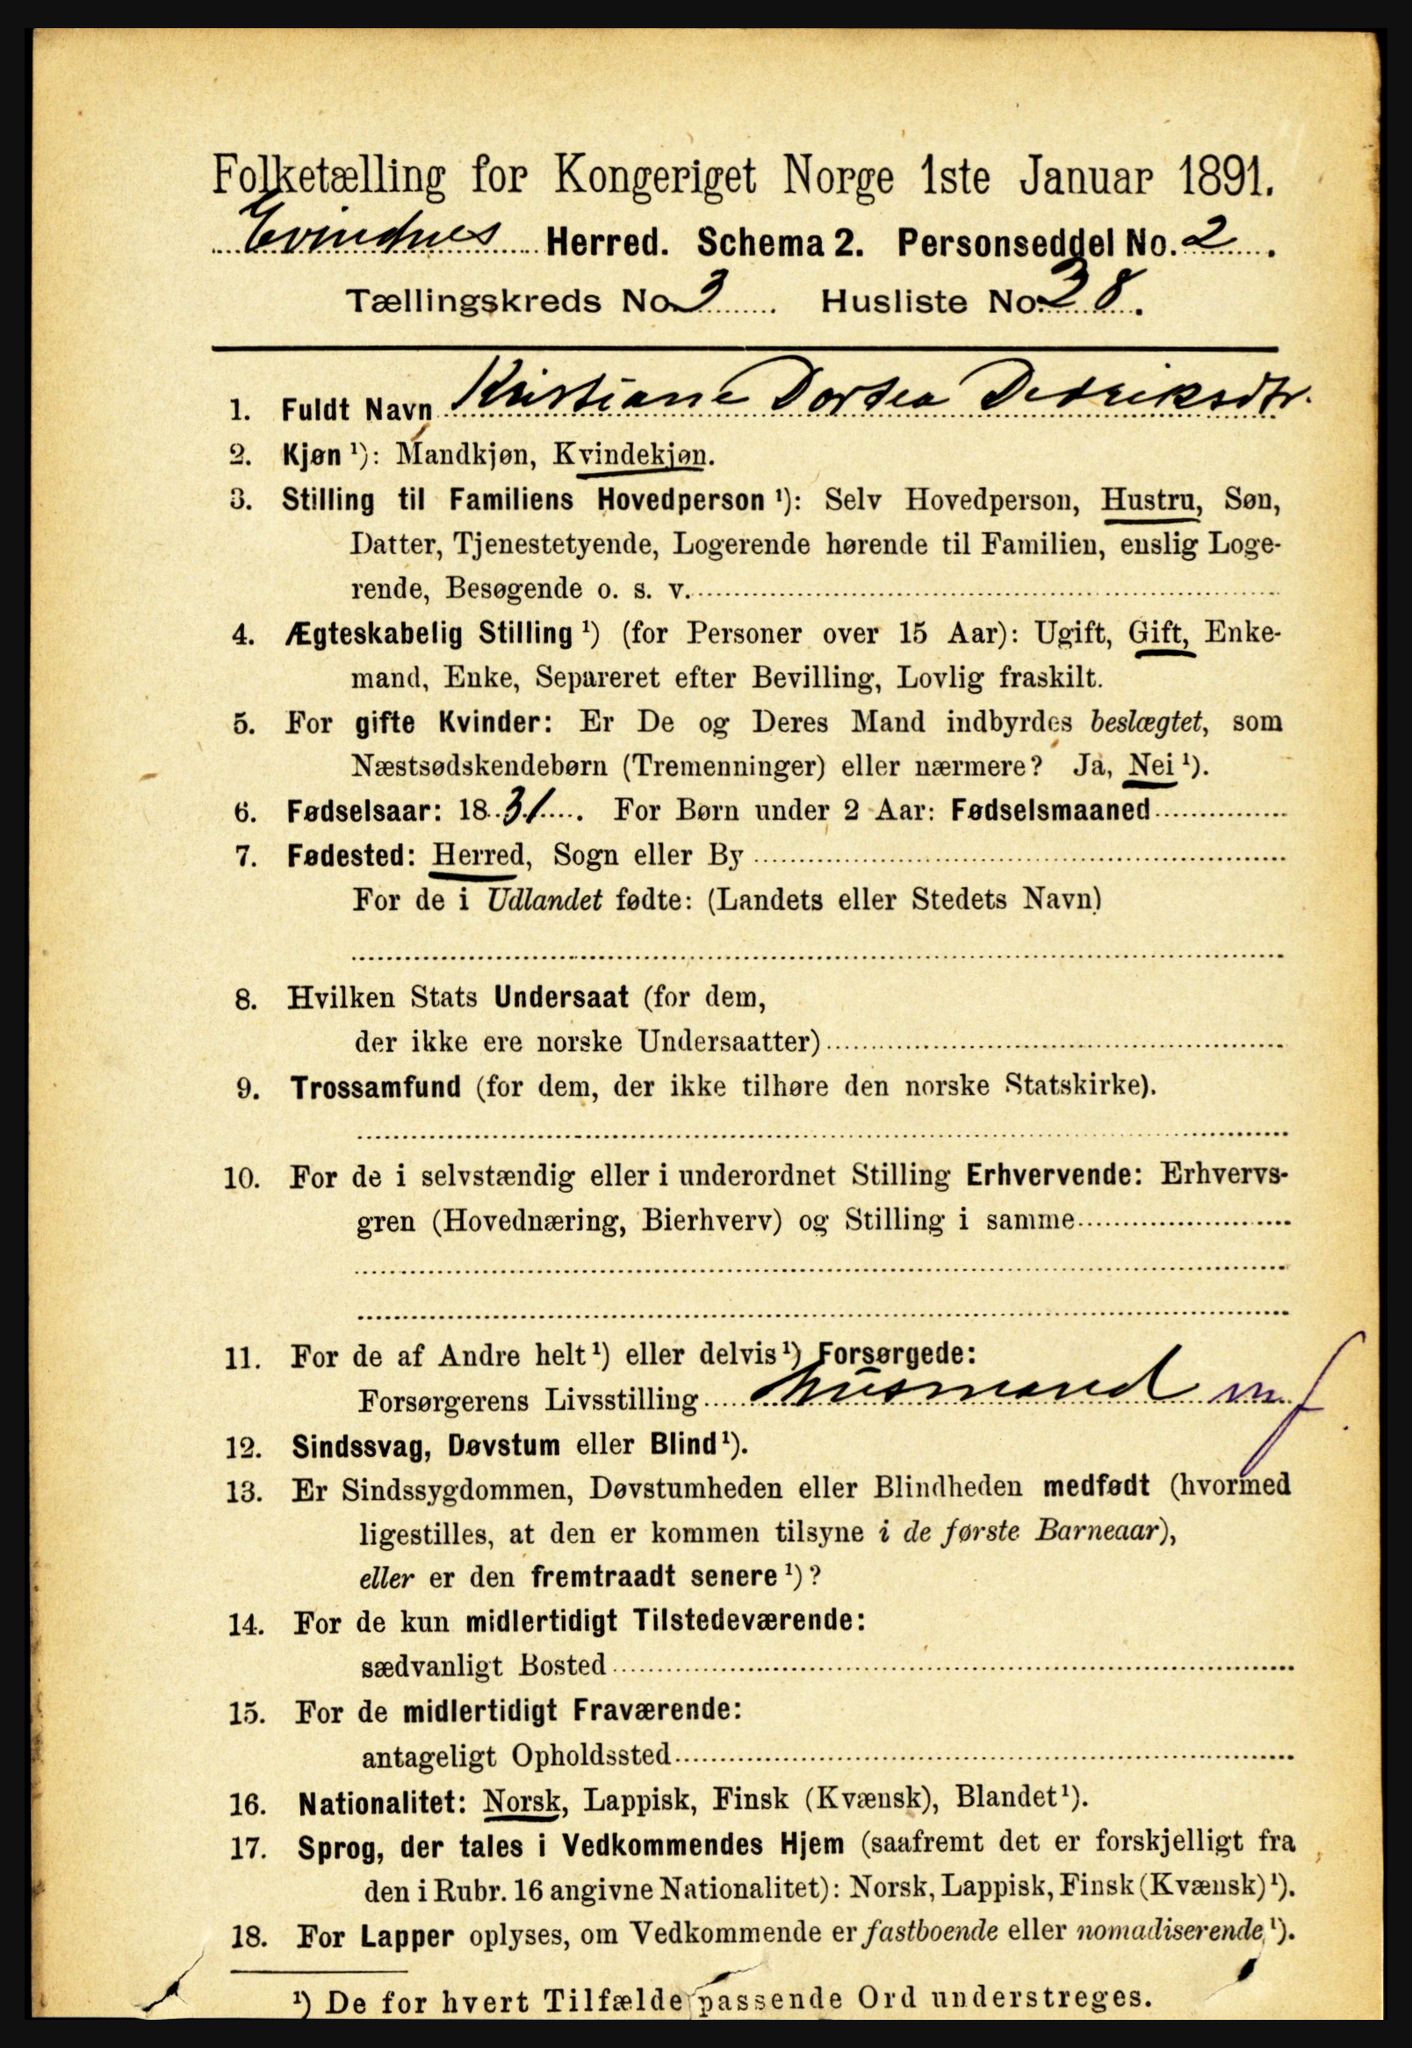 Folketælling for Kongeriget Norge 1ste Januar 1891.
Evindnes Herred. Schema 2. Personseddel No. 2.
Tællingskreds No. 3. Husliste No. 38.
1. Fuldt Navn Kristiane Dortea Dedriksdtr.
2. Kjøn ¹): Mandkjøn, Kvindekjøn.
3. Stilling til Familiens Hovedperson ¹): Selv Hovedperson, Hustru, Søn,
Datter, Tjenestetyende, Logerende hørende til Familien, enslig Loge-
rende, Besøgende o. s. v.
4. Ægteskabelig Stilling ¹) (for Personer over 15 Aar): Ugift, Gift, Enke-
mand, Enke, Separeret efter Bevilling, Lovlig fraskilt.
5. For gifte Kvinder: Er De og Deres Mand indbyrdes beslægtet, som
Næstsødskendebørn (Tremenninger) eller nærmere? Ja, Nei ¹).
6. Fødselsaar: 1831. For Børn under 2 Aar: Fødselsmaaned
7. Fødested: Herred, Sogn eller By
For de i Udlandet fødte: (Landets eller Stedets Navn)
8. Hvilken Stats Undersaat (for dem,
der ikke ere norske Undersaatter)
9. Trossamfund (for dem, der ikke tilhøre den norske Statskirke).
10. For de i selvstændig eller i underordnet Stilling Erhvervende: Erhvervs-
gren (Hovednæring, Bierhverv) og Stilling i samme
11. For de af Andre helt ¹) eller delvis ¹) Forsørgede:
Forsørgerens Livsstilling husmand mf
12. Sindssvag, Døvstum eller Blind ¹).
13. Er Sindssygdommen, Døvstumheden eller Blindheden medfødt (hvormed
ligestilles, at den er kommen tilsyne i de første Barneaar),
eller er den fremtraadt senere ¹)?
14. For de kun midlertidigt Tilstedeværende:
sædvanligt Bosted
15. For de midlertidigt Fraværende:
antageligt Opholdssted
16. Nationalitet: Norsk, Lappisk, Finsk (Kvænsk), Blandet ¹).
17. Sprog, der tales i Vedkommendes Hjem (saafremt det er forskjelligt fra
den i Rubr. 16 angivne Nationalitet): Norsk, Lappisk, Finsk (Kvænsk) ¹).
18. For Lapper oplyses, om Vedkommende er fastboende eller nomadiserende ¹).
¹) De for hvert Tilfælde passende Ord understreges.